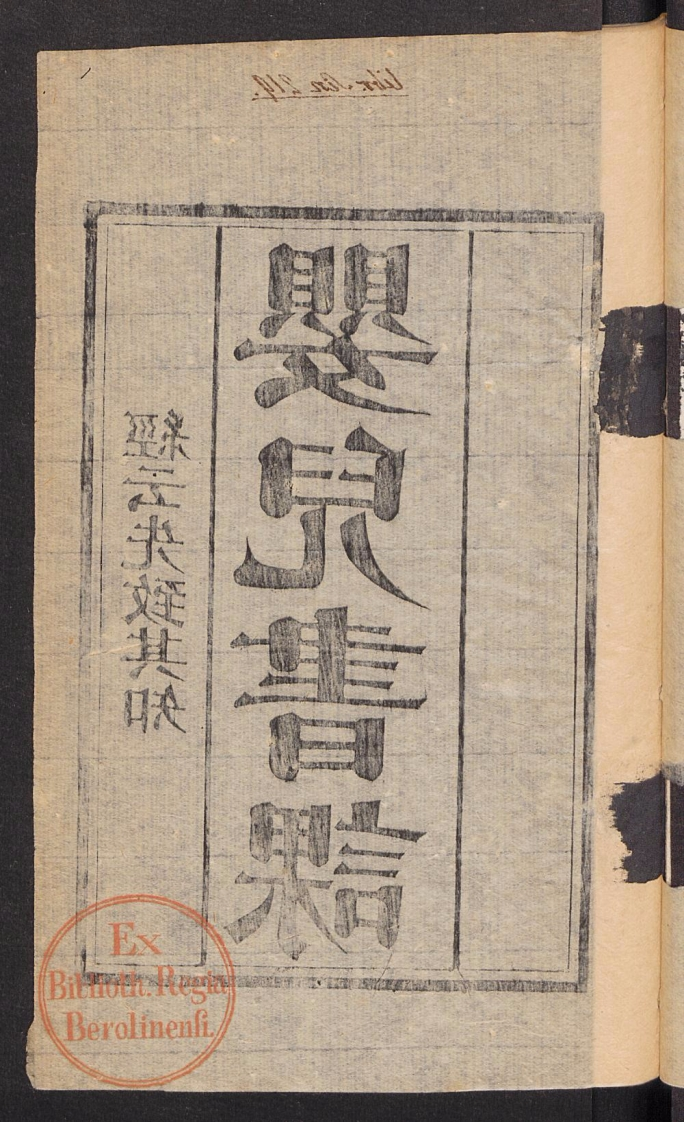 Libr. Sin. 219.
嬰兒書課
經云先致其知
Ex
Biblioth. Regia
Berolinenſi.